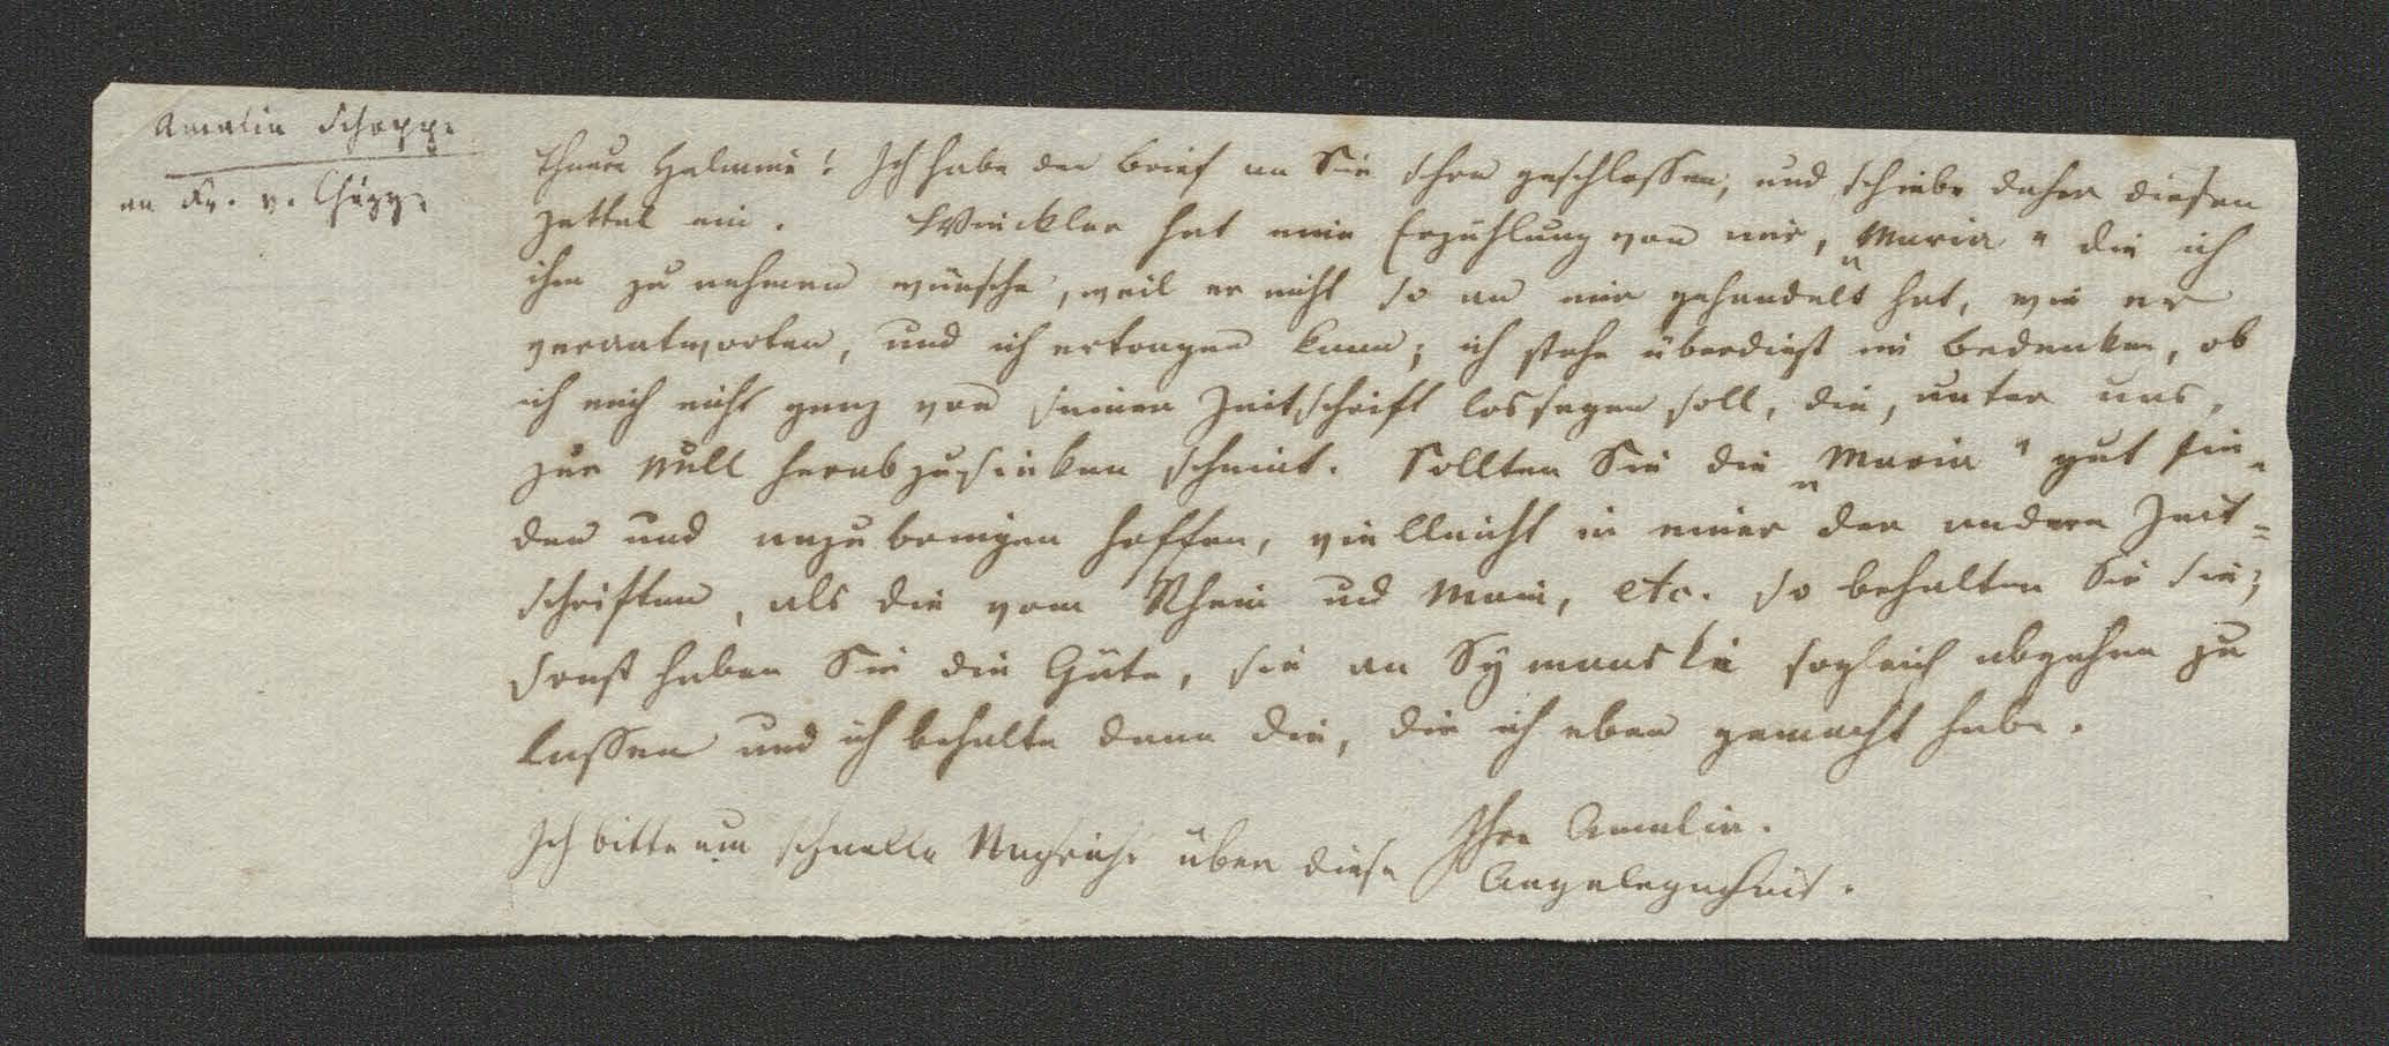 Amalia Schoppe
an Fr. v. Chézy.
Theure Helmina! Ich habe den Brief an Sie schon geschlossen, und schiebe daher diesen
Zettel ein. Winckler hat eine Erzählung von mir, „Maria“ die ich
ihm zu nehmen wünsche, weil er nicht so an mir gehandelt hat, wie er
verantworten, und ich ertragen kann; ich stehe überdieß im Bedenken, ob
ich mich nicht ganz von seiner Zeitschrift lossagen soll, die, unter uns,
zur Null herabzusinken scheint. Sollten Sie die „Maria“ gut fin-
den und anzubringen hoffen, vielleicht in einer der andern Zeit=
schriften, als die vom Rhein und Main, etc. so behalten Sie sie;
sonst haben Sie die Güte, sie an Symanski sogleich abgehen zu
lassen und ich behalte dann die, die ich eben gemacht habe.
Ihre Amalia.
Ich bitte um schnelle Nachricht über diese Angelegenheit.